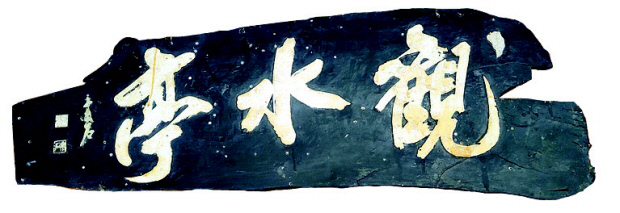 觀水亭